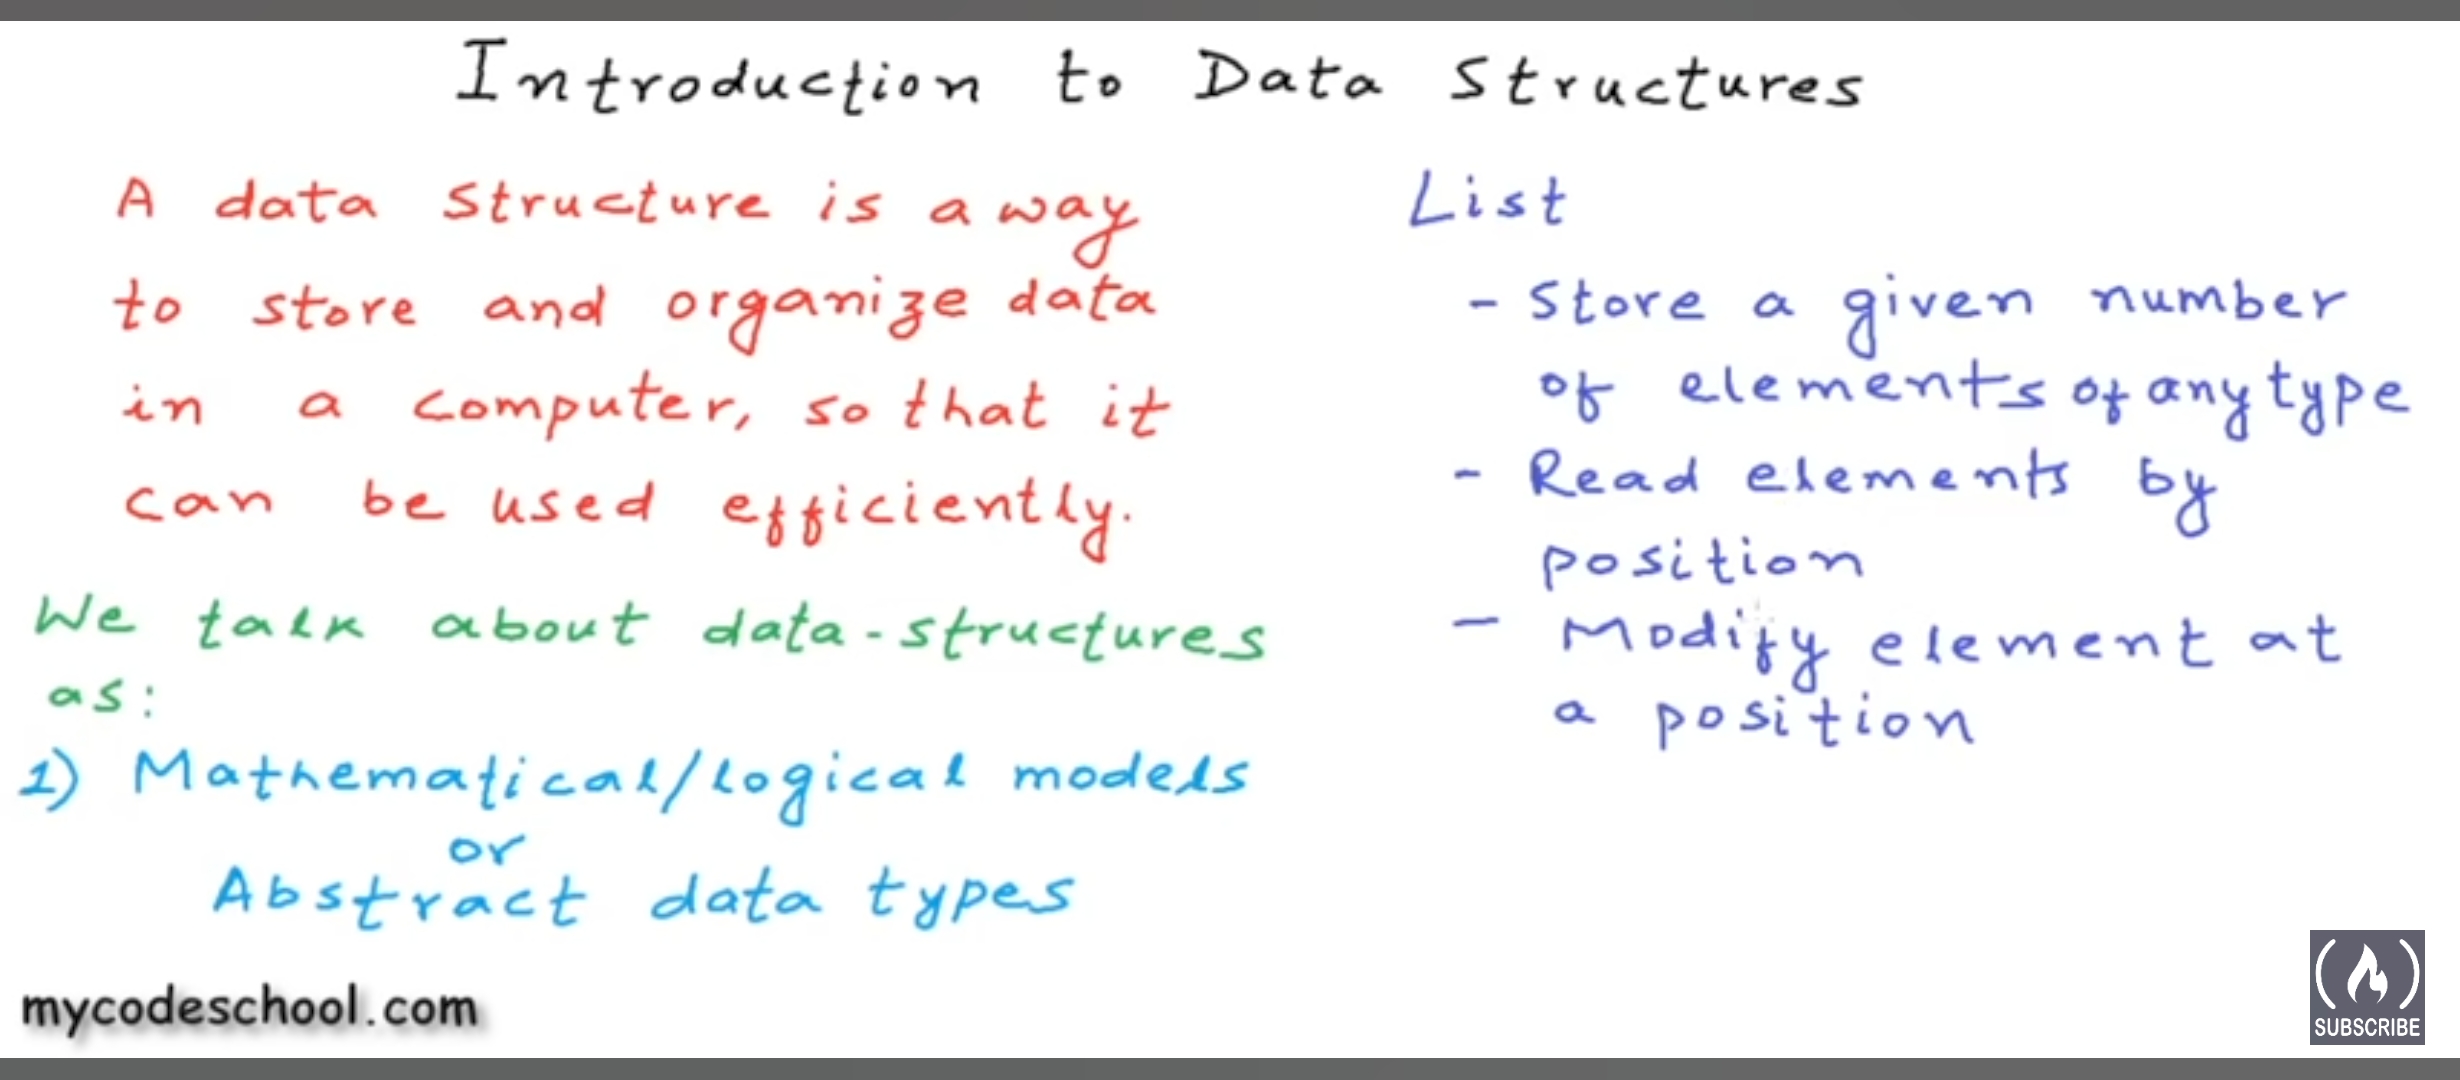 Introduction to Data Structures
A data structure is a way
to store and organize data
in a computer, so that it
can be used efficiently.
We talk about data-structures
as:
1) Mathematical/logical models
or
Abstract data types
List
- Store a given number
of elements of any type
- Read elements by
position
- Modify element at
a position
mycodeschool.com
SUBSCRIBE